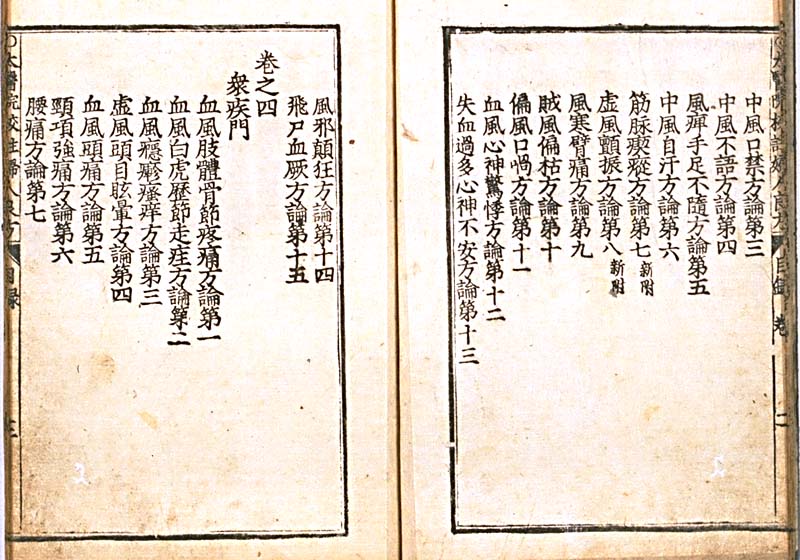 中風口禁方論第三
中風不語方論第四
風痺手足不隨方論第五
中風自汗方論第六
筋脉瘈瘲方論第七 新附
虛風顫振方論第八 新附
風寒臂痛方論第九
賊風偏枯方論第十
偏風口喎方論第十一
血風心神驚悸方論第十二
失血過多心神不安方論第十三
風邪顛狂方論第十四
飛尸血厥方論第十五
卷之四
衆疾門
血風肢體骨節疼痛方論第一
血風白虎歷節走疰方論第二
血風癮疹瘙痒方論第三
虛風頭目眩暈方論第四
血風頭痛方論第五
頸項強痛方論第六
腰痛方論第七
○太醫院校註婦人良方 目録